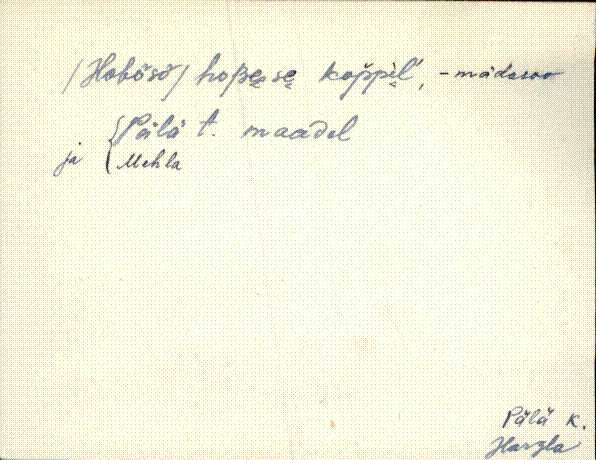 /Hobõsõ/ hoβe̮se̮ kop̆pi̮l', - mädasoo
{Pälä t. maadel
ja {Mehla
Pälä k.
Hargla